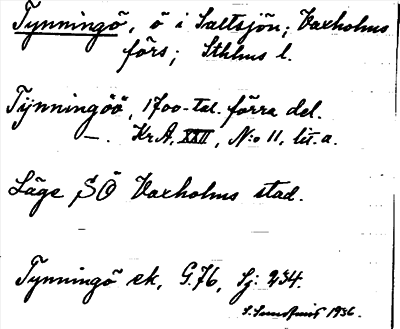 Tynningö, ö i Saltsjön; Vaxholms
förs; Sthlms l.
Tijnningöö, 1700-tal. förra del.
—. Kr A, XXII, N:o 11, lit. a.
Läge SÖ Vaxholms stad.
Tynningö ek, G.76, Sj: 234.
S. 1936.